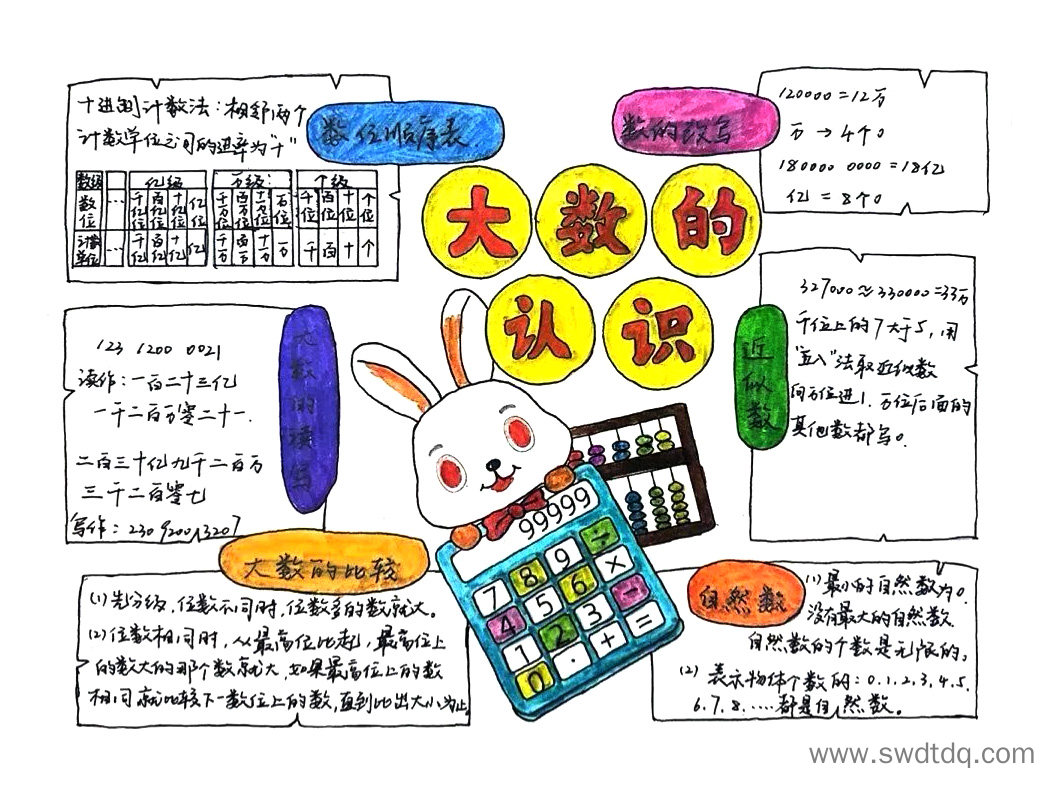 大数的
认识
数位顺序表
十进制计数法：相邻两个
计数单位之间的进率为"十"
数级 …… 亿级 万级： 个级
数位 …… 千亿位 百亿位 十亿位 亿位 千万位 百万位 十万位 万位 千位 百位 十位 个位
计数单位 …… 千亿 百亿 十亿 亿 千万 百万 十万 万 千 百 十 个
数的改写
120000=12万
万→4个0
180000 0000=18亿
亿=8个0
大数的读写
123 1200 0021
读作：一百二十三亿
一千二百万零二十一.
二百三十亿九千二百万
三千二百零七
写作：230 9200 3207
近似数
327000≈330000=33万
千位上的7大于5，用
"五入"法取近似数
向万位进1.万位后面的
其他数都写0.
大数的比较
(1)先分级，位数不同时，位数多的数就大。
(2)位数相同时，从最高位比起，最高位上
的数大的那个数就大，如果最高位上的数
相同就比较下一数位上的数，直到比出大小为止。
自然数
(1)最小的自然数为0.
没有最大的自然数.
自然数的个数是无限的，
(2) 表示物体个数的：0.1.2.3.4.5.
6.7.8.....都是自然数。
99999
7 8 9 ÷
4 5 6 ×
1 2 3 -
0 . + =
www.swdtdq.com